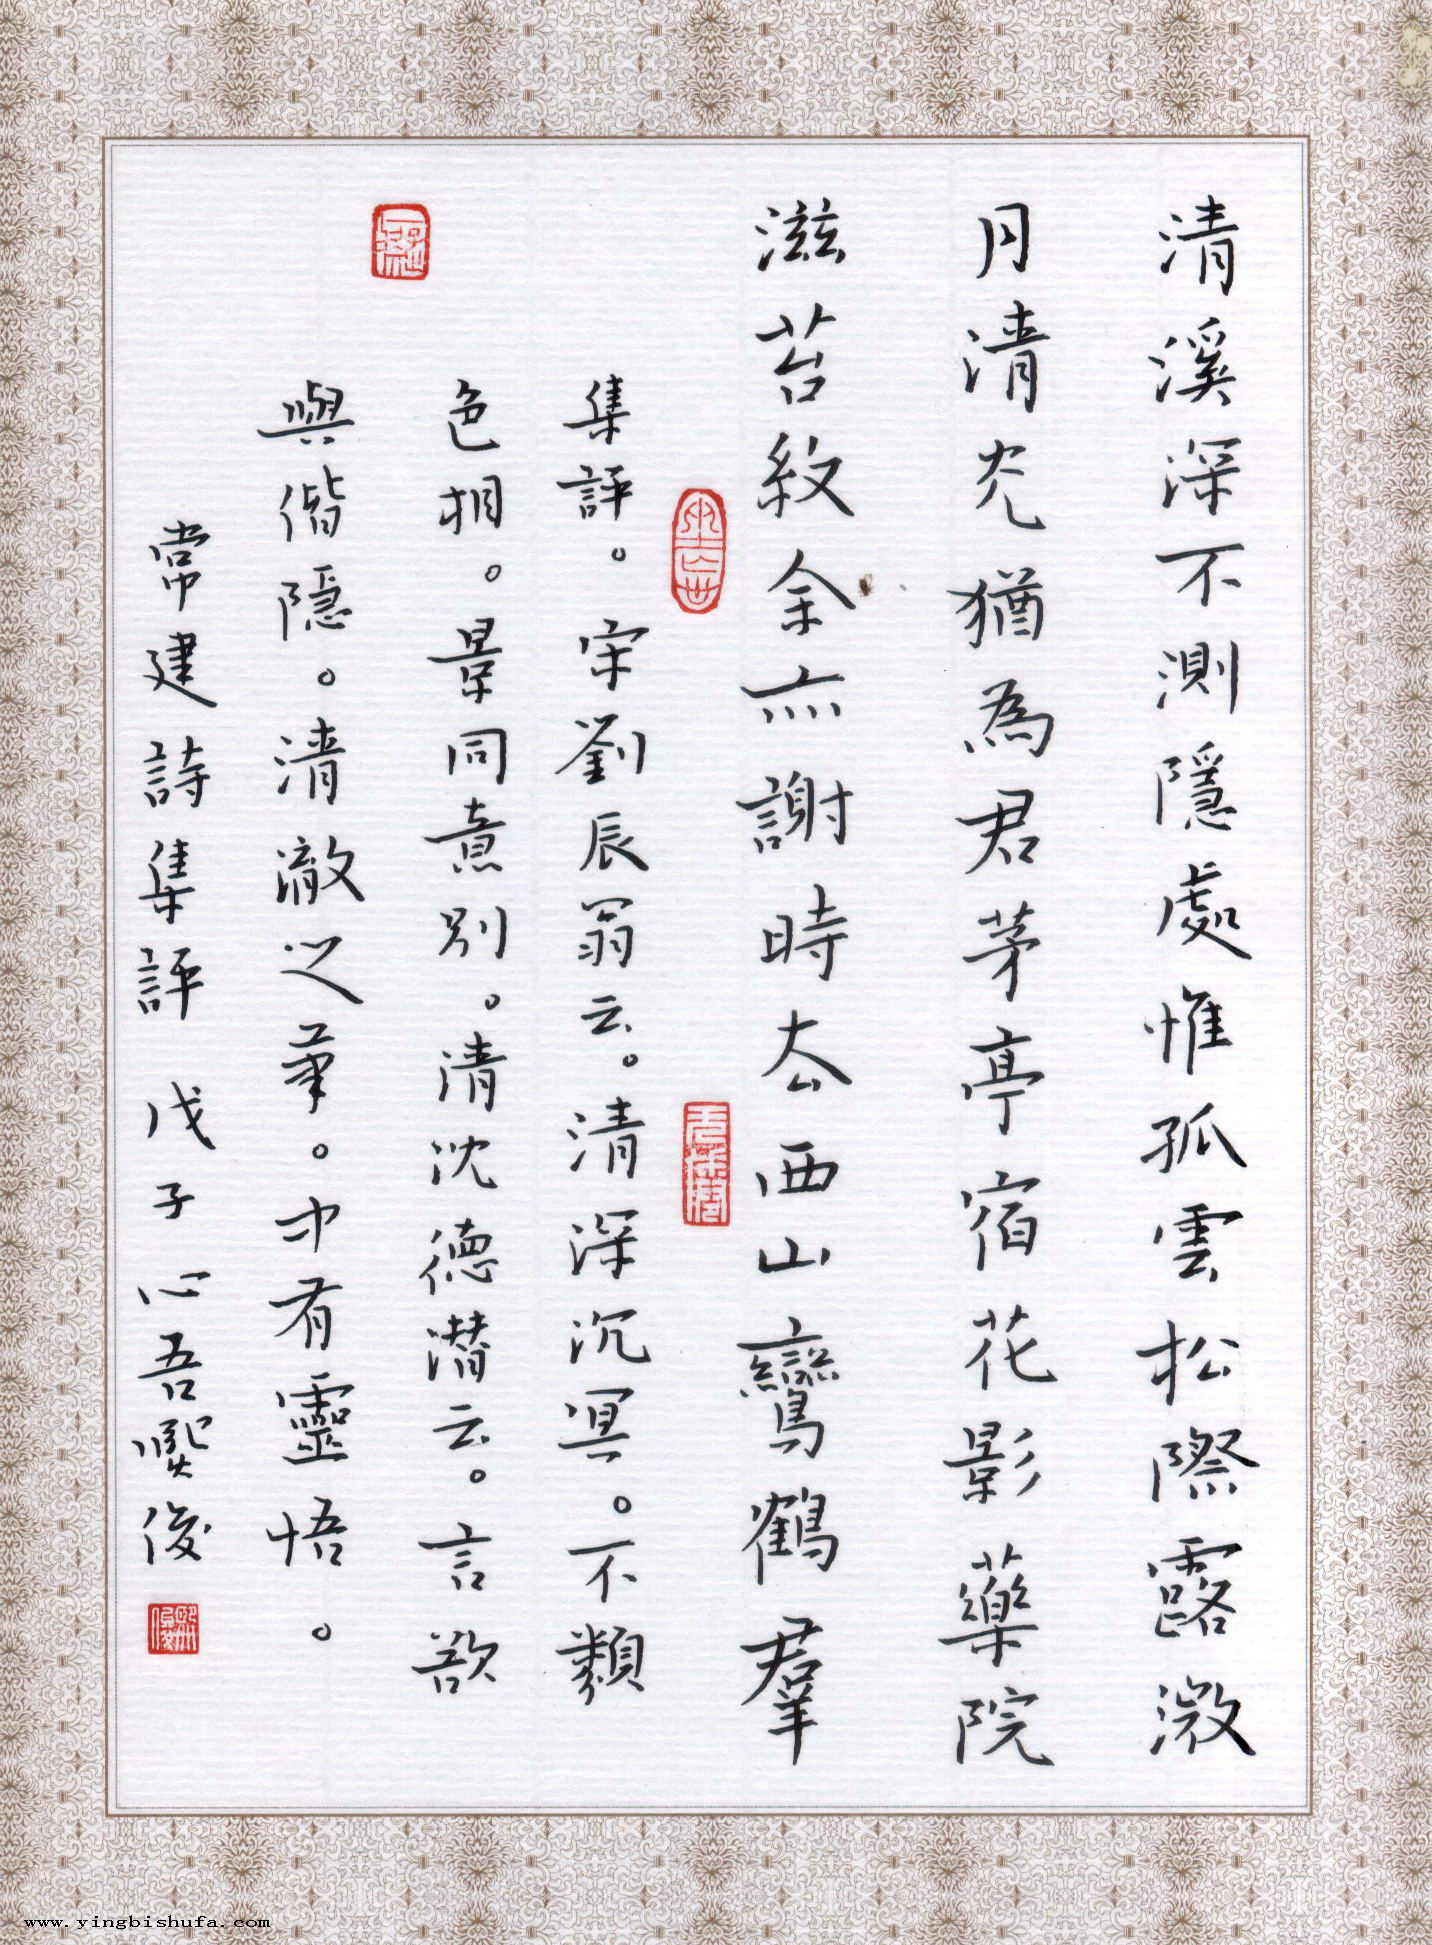 清溪深不測隱處惟孤雲松際露㣲
月清光猶為君茅亭宿花影藥院
滋苔紋余亦謝時去西山鸞鶴羣
集評。宋劉辰翁云。清深沉冥。不類
色相。景同意別。清沈德潛云。言欲
與偕隱。清澈之筆。中有靈悟。
常建詩集評 戊子心吾熙俊
www.yingbishufa.com